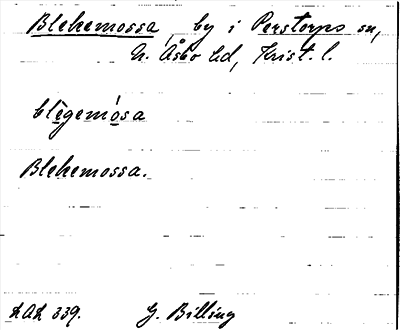 Blekemossa, by i Perstorps sn,
N. Åsbo hd, Krist. l.
blegemosa
Blekemossa.
LAL 339. G. Billing